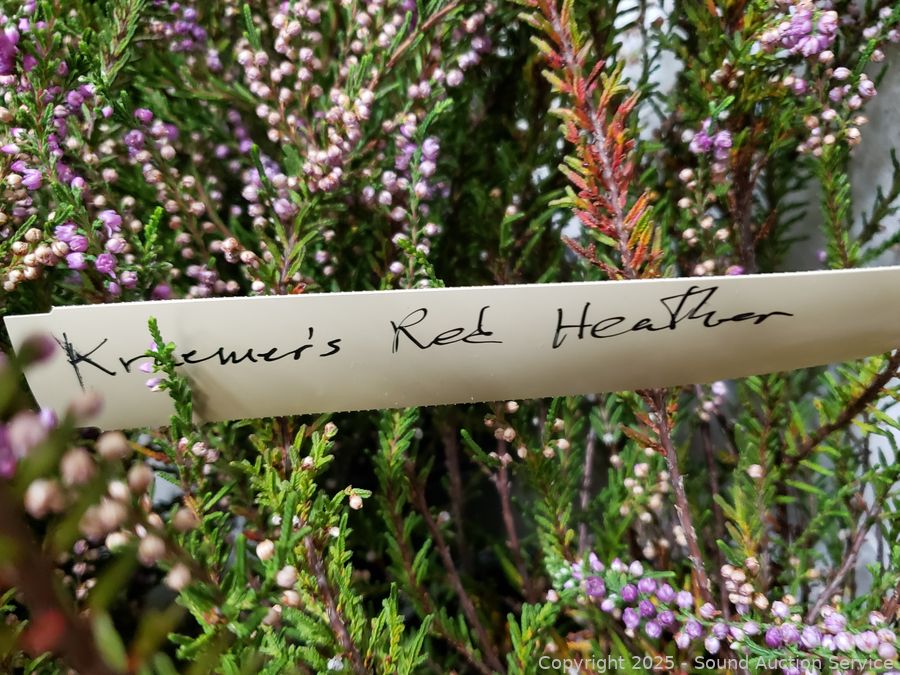 Kraemer's Red Heather
Copyright 2025 - Sound Auction Service